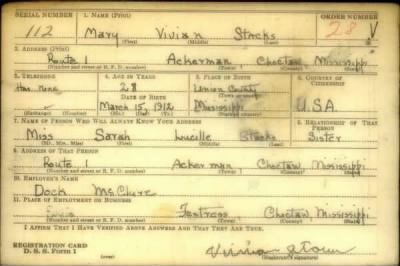 SERIAL NUMBER 1. NAME (Print) ORDER NUMBER
112 Mary Vivian Stacks 28 V
(First) (Middle) (Last)
2. ADDRESS (Print)
Route 1 Ackerman Choctaw Mississippi
(Number and street or R. F. D. number) (Town) (County) (State)
3. TELEPHONE 4. AGE IN YEARS 5. PLACE OF BIRTH 6. COUNTRY OF CITIZENSHIP
28
DATE OF BIRTH
March 15, 1912 Mississippi U.S.A.
(Exchange) (Number) (Mo.) (Day) (Yr.) (State or country)
7. NAME OF PERSON WHO WILL ALWAYS KNOW YOUR ADDRESS 8. RELATIONSHIP OF THAT PERSON
Miss Sarah Lucille Stacks Sister
(Mr., Mrs., Miss) (First) (Middle) (Last)
9. ADDRESS OF THAT PERSON
Route 1 Ackerman Choctaw, Mississippi
(Number and street or R. F. D. number) (Town) (County) (State)
10. EMPLOYER'S NAME
Dock McClure
11. PLACE OF EMPLOYMENT OR BUSINESS
Fentress Choctaw, Mississippi
(Number and street or R. F. D. number) (Town) (County) (State)
I AFFIRM THAT I HAVE VERIFIED ABOVE ANSWERS AND THAT THEY ARE TRUE.
REGISTRATION CARD
D. S. S. FORM 1
(over) (Registrant's signature)